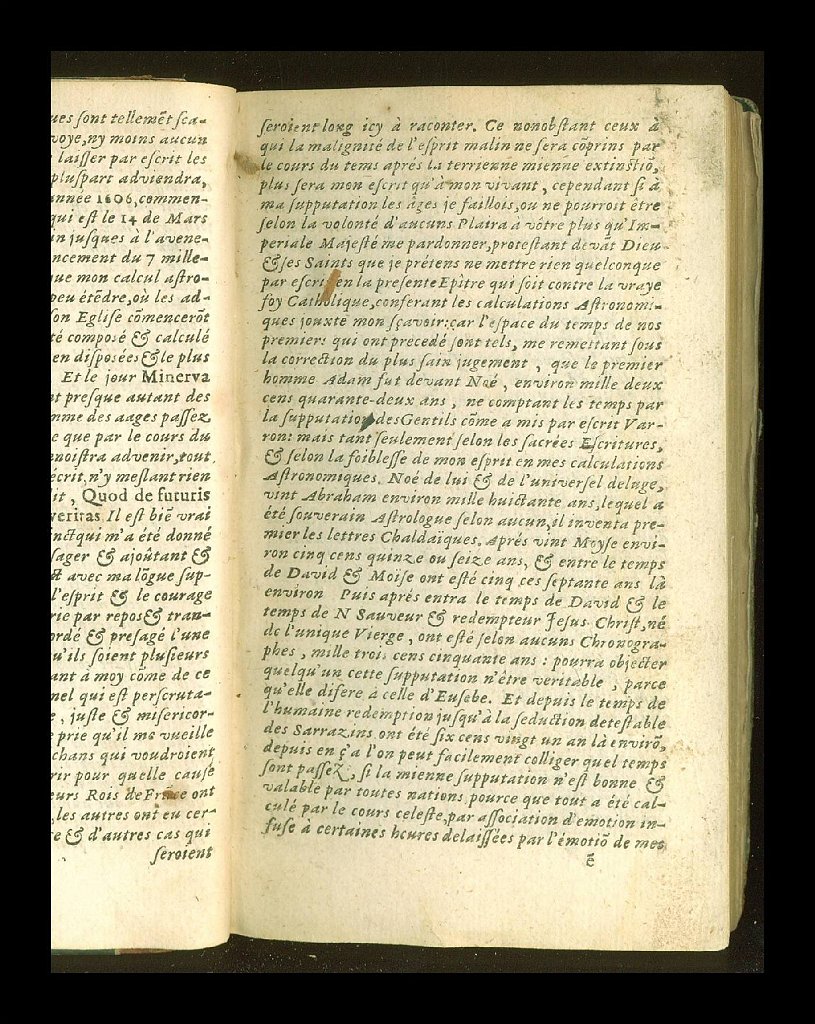 ues ſont tellemẽt ſca-
voye, ny moins aucun
laiſſer par eſcrit les
pluſpart adviendra,
annee 1606, commen-
qui eſt le 14 de Mars
in juſques à l'avene-
ncement du 7 mille-
que mon calcul aſtro-
peu étẽdre, où les ad-
ſon Egliſe cõmencerõt
té compoſé & calculé
en diſpoſées & le plus
Et le jour Minerva
nt preſque autant des
mme des aages paſſez
e que par le cours du
nnoiſtra advenir, tout
écrit, n'y meſlant rien
it, Quod de futuris
veritas. Il eſt biẽ vrai
inct qui m'a été donné
ſager & ajoûtant &
ſt avec ma lõgue ſup-
l'eſprit & le courage
rie par repos & tran-
ordé & preſagé l'une
u'ils ſoient pluſieurs
ant à moy cõme de ce
nel qui eſt perſcruta-
e, juſte & miſericor-
prie qu'il me vueille
chans qui voudroient
rir pour quelle cauſe
eurs Rois de France ont
les autres ont eu cer-
e & d'autres cas qui
ſeroient
ſeroient long icy à raconter. Ce nonobſtant ceux à
qui la malignité de l'eſprit malin ne ſera cõprins par
le cours du tems aprés la terrienne mienne extinctiõ,
plus ſera mon eſcrit qu'à mon vivant, cependant ſi à
ma ſupputation les âges je faillois, ou ne pourroit être
ſelon la volonté d'aucuns Plaira à vôtre plus qu'Im-
periale Majeſté me pardonner, proteſtant devãt Dieu
& ſes Saints que je prétens ne mettre rien quelconque
par eſcrit en la preſente Epitre qui ſoit contre la vraye
foy Catholique, conferant les calculations Aſtronomi-
ques jouxte mon ſçavoir: car l'eſpace du temps de nos
premiers qui ont precedé ſont tels, me remettant ſous
la correction du plus ſain jugement, que le premier
homme Adam fut devant Noé, environ mille deux
cens quarante-deux ans, ne comptant les temps par
la ſupputation des Gentils cõme a mis par eſcrit Var-
ron: mais tant ſeulement ſelon les ſacrées Eſcritures,
& ſelon la foibleſſe de mon eſprit en mes calculations
Aſtronomiques. Noé de lui & de l'univerſel deluge,
vint Abraham environ mille huictante ans, lequel a
été ſouverain Aſtrologue ſelon aucun, il inventa pre-
mier les lettres Chaldaiques. Aprés vint Moyſe envi-
ron cinq cens quinze ou ſeize ans, & entre le temps
de David & Moiſe ont eſté cinq ces ſeptante ans là
environ Puis aprés entra le temps de David & le
temps de N Sauveur & redempteur Jeſus-Chriſt, né
de l'unique Vierge, ont eſté ſelon aucuns Chronogra-
phes, mille trois cens cinquante ans : pourra objecter
quelqu'un cette ſupputation n'être veritable, parce
qu'elle difere à celle d'Euſebe. Et depuis le temps de
l'humaine redemption juſqu'à la ſeduction deteſtable
des Sarrazins ont été ſix cens vingt un an là envirõ,
depuis en ç'a l'on peut facilement colliger quel temps
ſont paſſez, ſi la mienne ſupputation n'eſt bonne &
valable par toutes nations pource que tout a été cal-
culé par le cours celeſte, par aſſociation d'emotion in-
fuſe à certaines heures delaiſſées par l'émotiõ de mes
ẽ